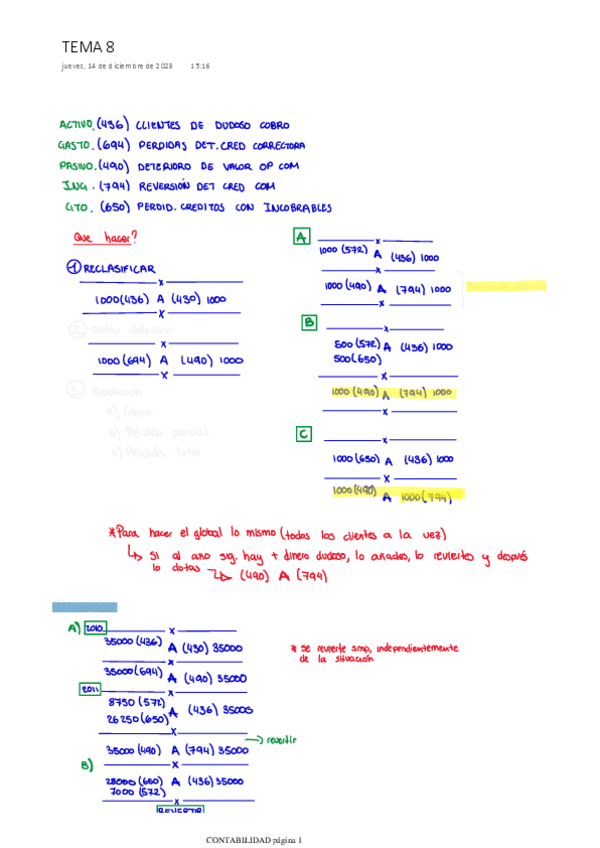 TEMA 8
jueves, 14 de diciembre de 2023 15:16
ACTIVO. (436) CLIENTES DE DUDOSO COBRO
GASTO. (694) PERDIDAS DET. CRED CORRECTORA
PASIVO. (490) DETERIORO DE VALOR OP COM
ING. (794) REVERSIÓN DET CRED COM
GTO. (650) PERDID. CREDITOS CON INCOBRABLES
Que hacer?
① RECLASIFICAR
x
1000 (436) A (430) 1000
x
② Dotar deterioro
x
1000 (694) A (490) 1000
x
③ Resolución
a) Cobra
b) Pérdida parcial
c) Pérdida total
A
x
1000 (572) A (436) 1000
x
1000 (490) A (794) 1000
x
B
x
500 (572) A (436) 1000
500 (650)
x
1000 (490) A (794) 1000
x
C
x
1000 (650) A (436) 1000
x
1000 (490) A 1000 (794)
*Para hacer el global lo mismo (todos los clientes a la vez)
↳ Si al año sig. hay + dinero dudoso, lo añades, lo reviertes y después
lo dotas ↳ (490) A (794)
A) 2010 x
35000 (436) A (430) 35000
x
35000 (694) A (490) 35000
2011 x
8750 (572) A (436) 35000
26250 (650)
x → revertir
35000 (490) A (794) 35000
B) x
28000 (650) A (436) 35000
7000 (572)
x
REVERTIR
* se revierte smp, independientemente
de la situación
CONTABILIDAD página 1